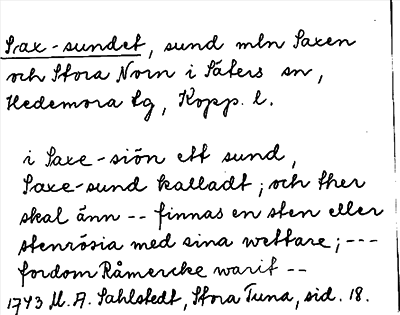 Sax-sundet, sund mln Saxen
och Stora Norn i Säters sn,
Hedemora tg, Kopp. l.
i Saxe-siön ett sund,
Saxe-sund kalladt; och ther
skal änn -- finnas en sten eller
stenrösia med sina wettare; ---
fordom Råmercke warit --
1743 M. A. Sahlstedt, Stora Tuna, sid. 18.